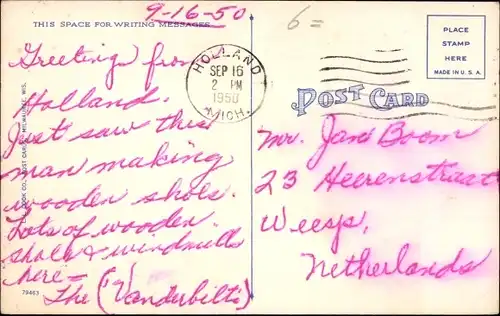 9-16-50
6=
THIS SPACE FOR WRITING MESSAGES
PLACE
STAMP
HERE
MADE IN U.S.A.
HOLLAND
SEP 16
2 PM
1950
MICH.
POST CARD
Greeting from
Holland.
Just saw this
man making
wooden shoes.
Lots of wooden
shoes & windmills
here —
The ("Vanderbilts")
79463
Mr. Jan Boom
23 Heerenstraat
Weesp,
Netherlands